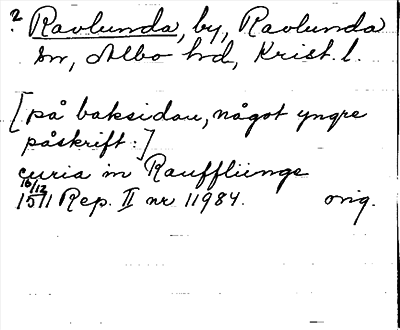 ? Ravlunda, by, Ravlunda
sn, Albo hd, Krist. l.
[på baksidan, något yngre
påskrift:]
curia in Raufflünge
16/12
1511 Rep. II nr 11984. orig.